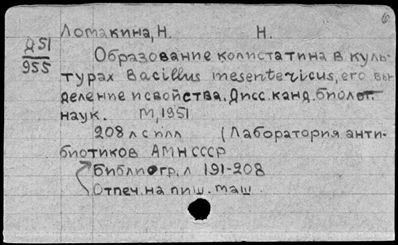 Ломакина, Н. Н.
Д51
955
Образование колистатина в куль-
турах Bacillus mesentericus, его вы-
деление и свойства. Дисс. канд. биолог.
наук. М, 1951
208 л с илл (Лаборатория анти-
биотиков АМН СССР
Библиогр. л 191-208
Отпеч. на пиш. маш.